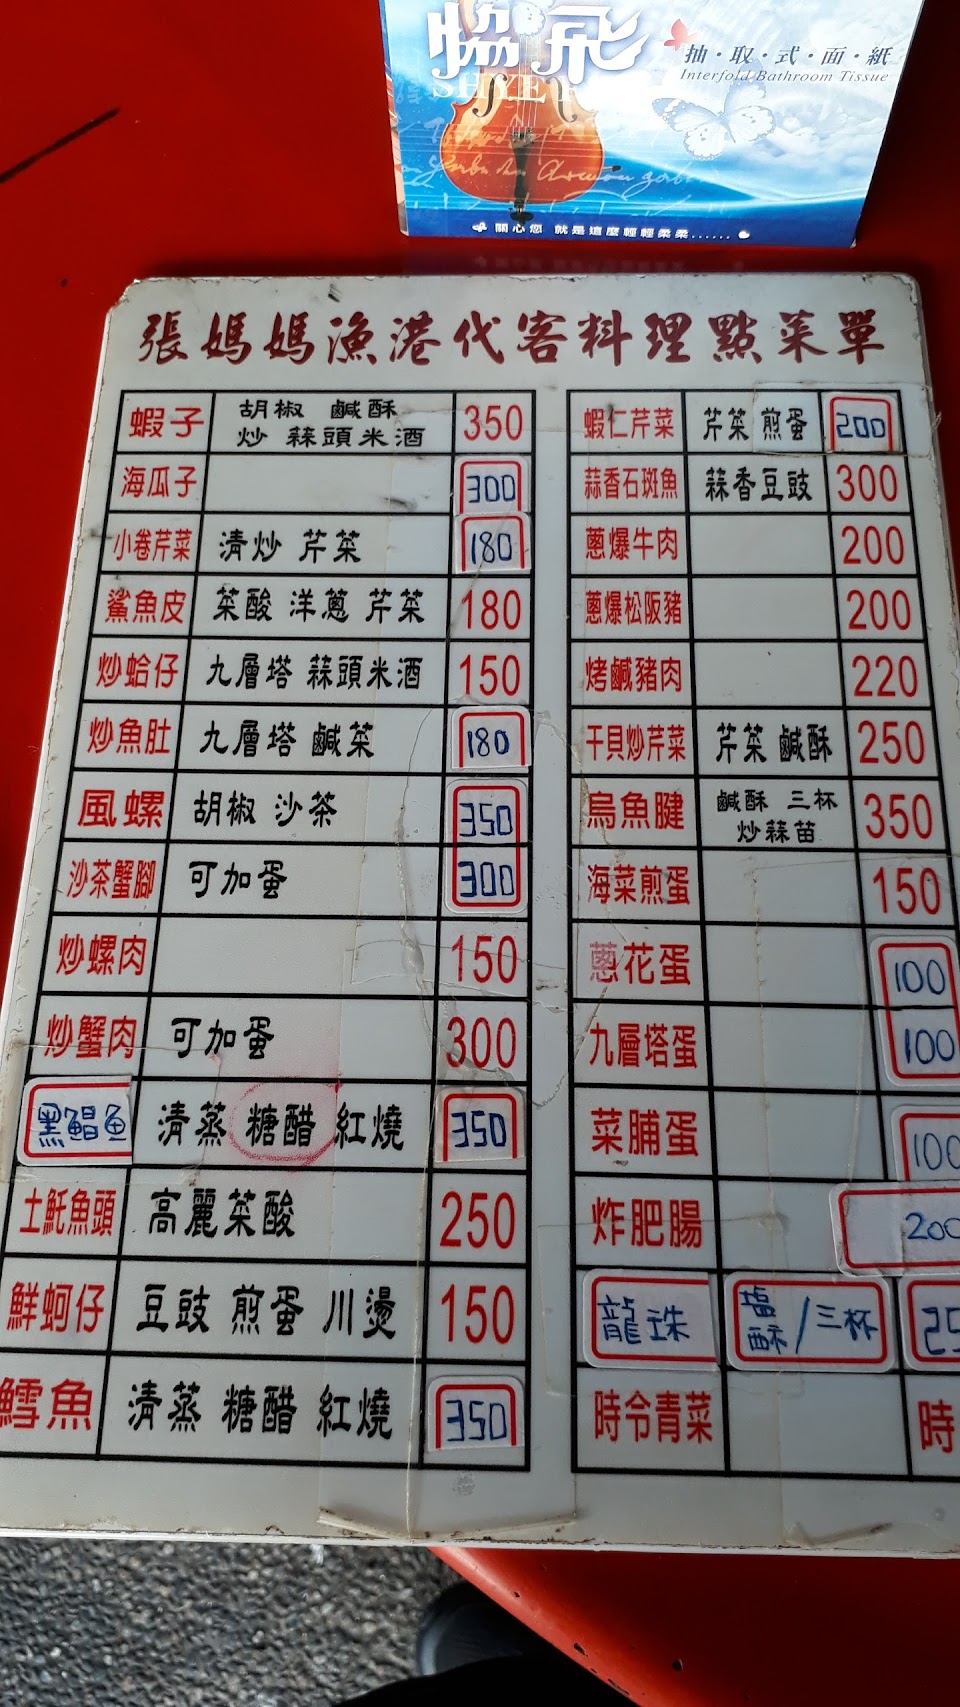 協飛
SHYE F
抽·取·式·面·紙
Interfold Bathroom Tissue
關心您 就是這麼輕輕柔柔......
張媽媽漁港代客料理點菜單
蝦子 胡椒 鹹酥 炒 蒜頭米酒 350
海瓜子 300
小卷芹菜 清炒 芹菜 180
鯊魚皮 菜酸 洋蔥 芹菜 180
炒蛤仔 九層塔 蒜頭米酒 150
炒魚肚 九層塔 鹹菜 180
風螺 胡椒 沙茶 350
沙茶蟹腳 可加蛋 300
炒螺肉 150
炒蟹肉 可加蛋 300
黑鯧魚 清蒸 糖醋 紅燒 350
土魠魚頭 高麗菜酸 250
鮮蚵仔 豆豉 煎蛋 川燙 150
鱈魚 清蒸 糖醋 紅燒 350
蝦仁芹菜 芹菜 煎蛋 200
蒜香石斑魚 蒜香豆豉 300
蔥爆牛肉 200
蔥爆松阪豬 200
烤鹹豬肉 220
干貝炒芹菜 芹菜 鹹酥 250
烏魚腱 鹹酥 三杯 炒蒜苗 350
海菜煎蛋 150
蔥花蛋 100
九層塔蛋 100
菜脯蛋 100
炸肥腸 200
龍珠 塩酥/三杯 25
時令青菜 時